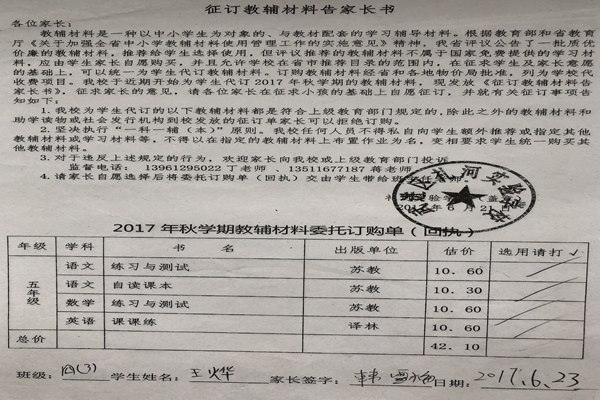 征订教辅材料告家长书
各位家长：
教辅材料是一种以中小学生为对象的、与教材配套的学习辅导材料。根据教育部和省教育
厅《关于加强全省中小学教辅材料使用管理工作的实施意见》精神，我省评议公告了一批质优
价廉的教辅材料，推荐给学生选择使用，但评议推荐的教辅材料不属于国家免费提供的学习材
料，应由学生家长自愿购买，并且允许学校在省市推荐目录的范围内，在征求学生及家长意愿
的基础上，可以统一为学生代订教辅材料。订购教辅材料经省和各地物价局批准，列为学校代
收费项目。我校于近期开始为学生代订2017年秋学期的教辅材料，现发放《征订教辅材料告
家长书》，征求家长的意见，请各位家长在征求小孩的基础上自愿征订，并就有关征订事项告
知如下：
1.我校为学生代订的以下教辅材料都是符合上级教育部门规定的，除此之外的教辅材料和
助学读物或社会发行机构到校发放的征订单家长可以拒绝订购。
2.坚决执行“一科一辅（本）”原则。我校任何人员不得私自向学生额外推荐或指定其他
教辅材料或学习材料等，不得以在指定的教辅材料上布置作业为名，变相要求学生统一购买其
他教辅材料。
3.对于违反上述规定的行为，欢迎家长向我校或上级教育部门投诉
监督电话： 13961295022 丁老师 、13511677187 蒋老师
4.请家长自愿选择后将委托订购单（回执）交由学生带给班主任
2017年秋学期教辅材料委托订购单（回执）
年级 学科 书 名 出版单位 估价 选用请打√
五年级 语文 练习与测试 苏教 10.60
语文 自读课本 苏教 10.30
数学 练习与测试 苏教 10.60
英语 课课练 译林 10.60
总价 42.10
班级：四(3) 学生姓名：王烨 家长签字： 日期：2017.6.23